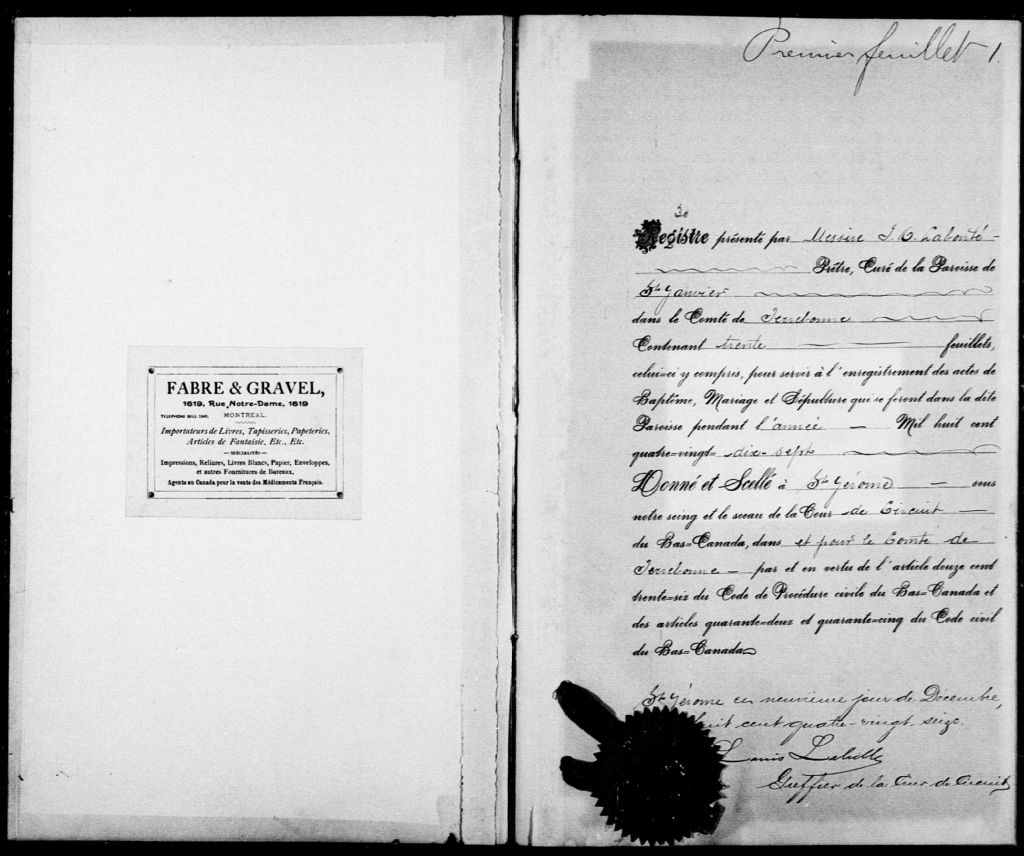 FABRE & GRAVEL,
1619, Rue Notre-Dame, 1619
TELEPHONE BELL 1040. MONTREAL.
Importateurs de Livres, Tapisseries, Papeteries,
Articles de Fantaisie, Etc., Etc.
—SPÉCIALITÉS—
Impressions, Reliures, Livres Blancs, Papier, Enveloppes,
et autres Fournitures de Bureaux.
Agents au Canada pour la vente des Médicaments Français.
Premier feuillet 1
Registre présenté par Messire J. O. Labonté -
Prêtre, Curé de la Paroisse de
St. Janvier
dans le Comté de Terrebonne
Contenant trente — — feuillets,
celui=ci y compris, pour servir à l'enregistrement des actes de
Baptême, Mariage et Sépulture qui se feront dans la dite
Paroisse pendant l'année — Mil huit cent
quatre=vingt= dix-sept
Donné et Scellé à St. Jérome — sous
notre seing et le sceau de la Cour de Circuit —
du Bas=Canada, dans et pour le Comté de
Terrebonne — par et en vertu de l'article douze cent
trente=six du Code de Procédure civile du Bas=Canada et
des articles quarante=deux et quarante=cinq du Code civil
du Bas=Canada
St. Jérome ce neuvième jour de Décembre,
huit cent quatre-vingt seize.
Louis Labelle
Greffier de la Cour de Circuit